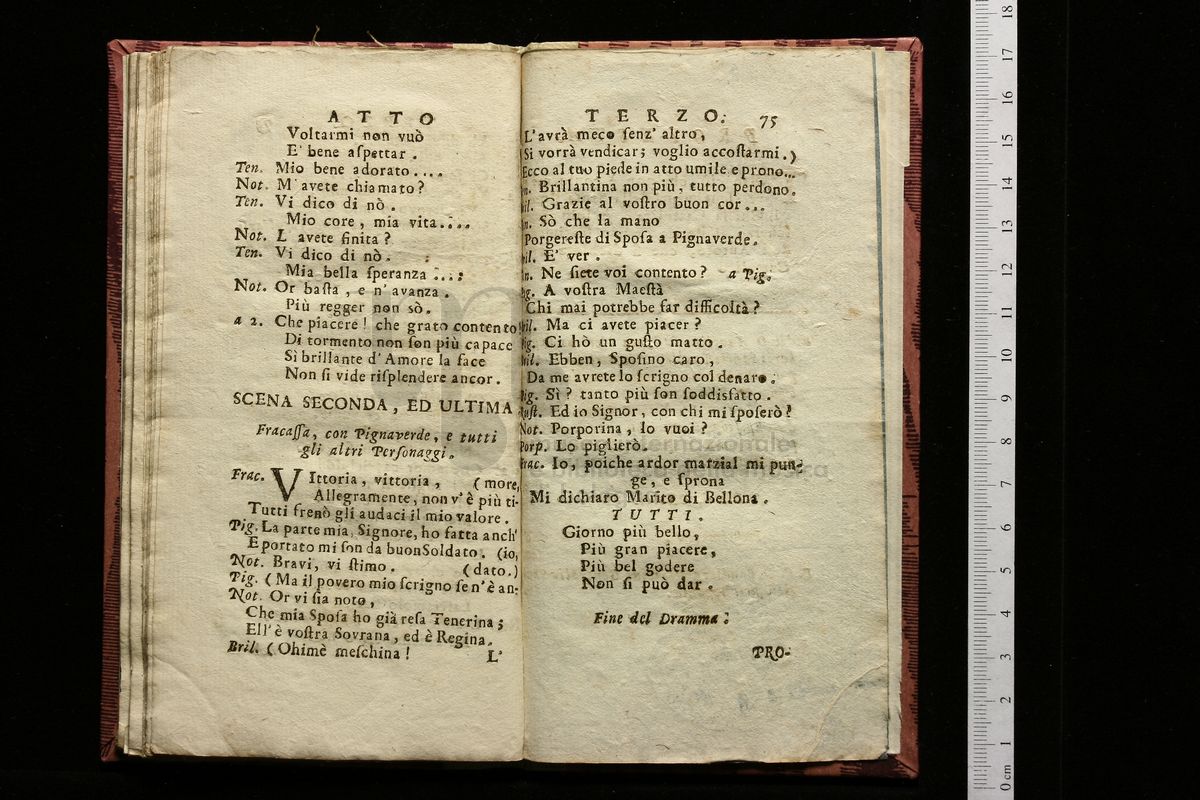 ATTO
Voltarmi non vuò
E' bene aſpettar.
Ten. Mio bene adorato....
Not. M'avete chiamato?
Ten. Vi dico di nò.
Mio core, mia vita....
Not. L'avete finita?
Ten. Vi dico di nò.
Mia bella ſperanza ....
Not. Or baſta, e n'avanza.
Più regger non sò.
a 2. Che piacere! che grato contento!
Di tormento non ſon più capace
Sì brillante d'Amore la face
Non ſi vide riſplendere ancor.
SCENA SECONDA, ED ULTIMA
Fracaſſa, con Pignaverde, e tutti
gli altri Perſonaggi.
Frac. VIttoria, vittoria, (more,
Allegramente, non v'è più ti-
Tutti frenò gli audaci il mio valore.
Pig. La parte mia, Signore, ho fatta anch'
E portato mi ſon da buon Soldato. (io,
Not. Bravi, vi ſtimo. (dato.)
Pig. (Ma il povero mio ſcrigno ſe n'è an-
Not. Or vi ſia noto,
Che mia Spoſa ho già reſa Tenerina;
Ell'è voſtra Sovrana, ed è Regina.
Bril. (Ohimè meſchina!
L'
TERZO. 75
L'avrà meco ſenz'altro,
Si vorrà vendicar; voglio accoſtarmi.)
Ecco al tuo piede in atto umile e prono...
Brillantina non più, tutto perdono.
Grazie al voſtro buon cor...
Sò che la mano
Porgereſte di Spoſa a Pignaverde.
E' ver.
Ne ſiete voi contento? a Pig.
A voſtra Maeſtà
Chi mai potrebbe far difficoltà?
Ma ci avete piacer?
Ci hò un guſto matto.
Ebben, Spoſino caro,
Da me avrete lo ſcrigno col denaro.
Sì? tanto più ſon ſoddisfatto.
Ruſt. Ed io Signor, con chi mi ſpoſerò?
Not. Porporina, lo vuoi?
Porp. Lo piglierò.
Frac. Io, poiche ardor marzial mi pun-
ge, e ſprona
Mi dichiaro Marito di Bellona.
TUTTI.
Giorno più bello,
Più gran piacere,
Più bel godere
Non ſi può dar.
Fine del Dramma.
PRO-
0 cm 1 2 3 4 5 6 7 8 9 10 11 12 13 14 15 16 17 18